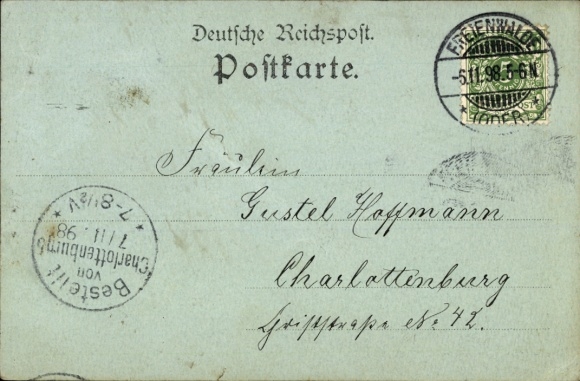 Deutsche Reichspost.
Postkarte.
FREIENWALDE
-6.11.98.5-6N.
* (ODER) *
Fräulein
Gustel Hoffmann
Charlottenburg
No 42.
Bestellt
von
Charlottenburg
7/11.98
* 7-8½V. *